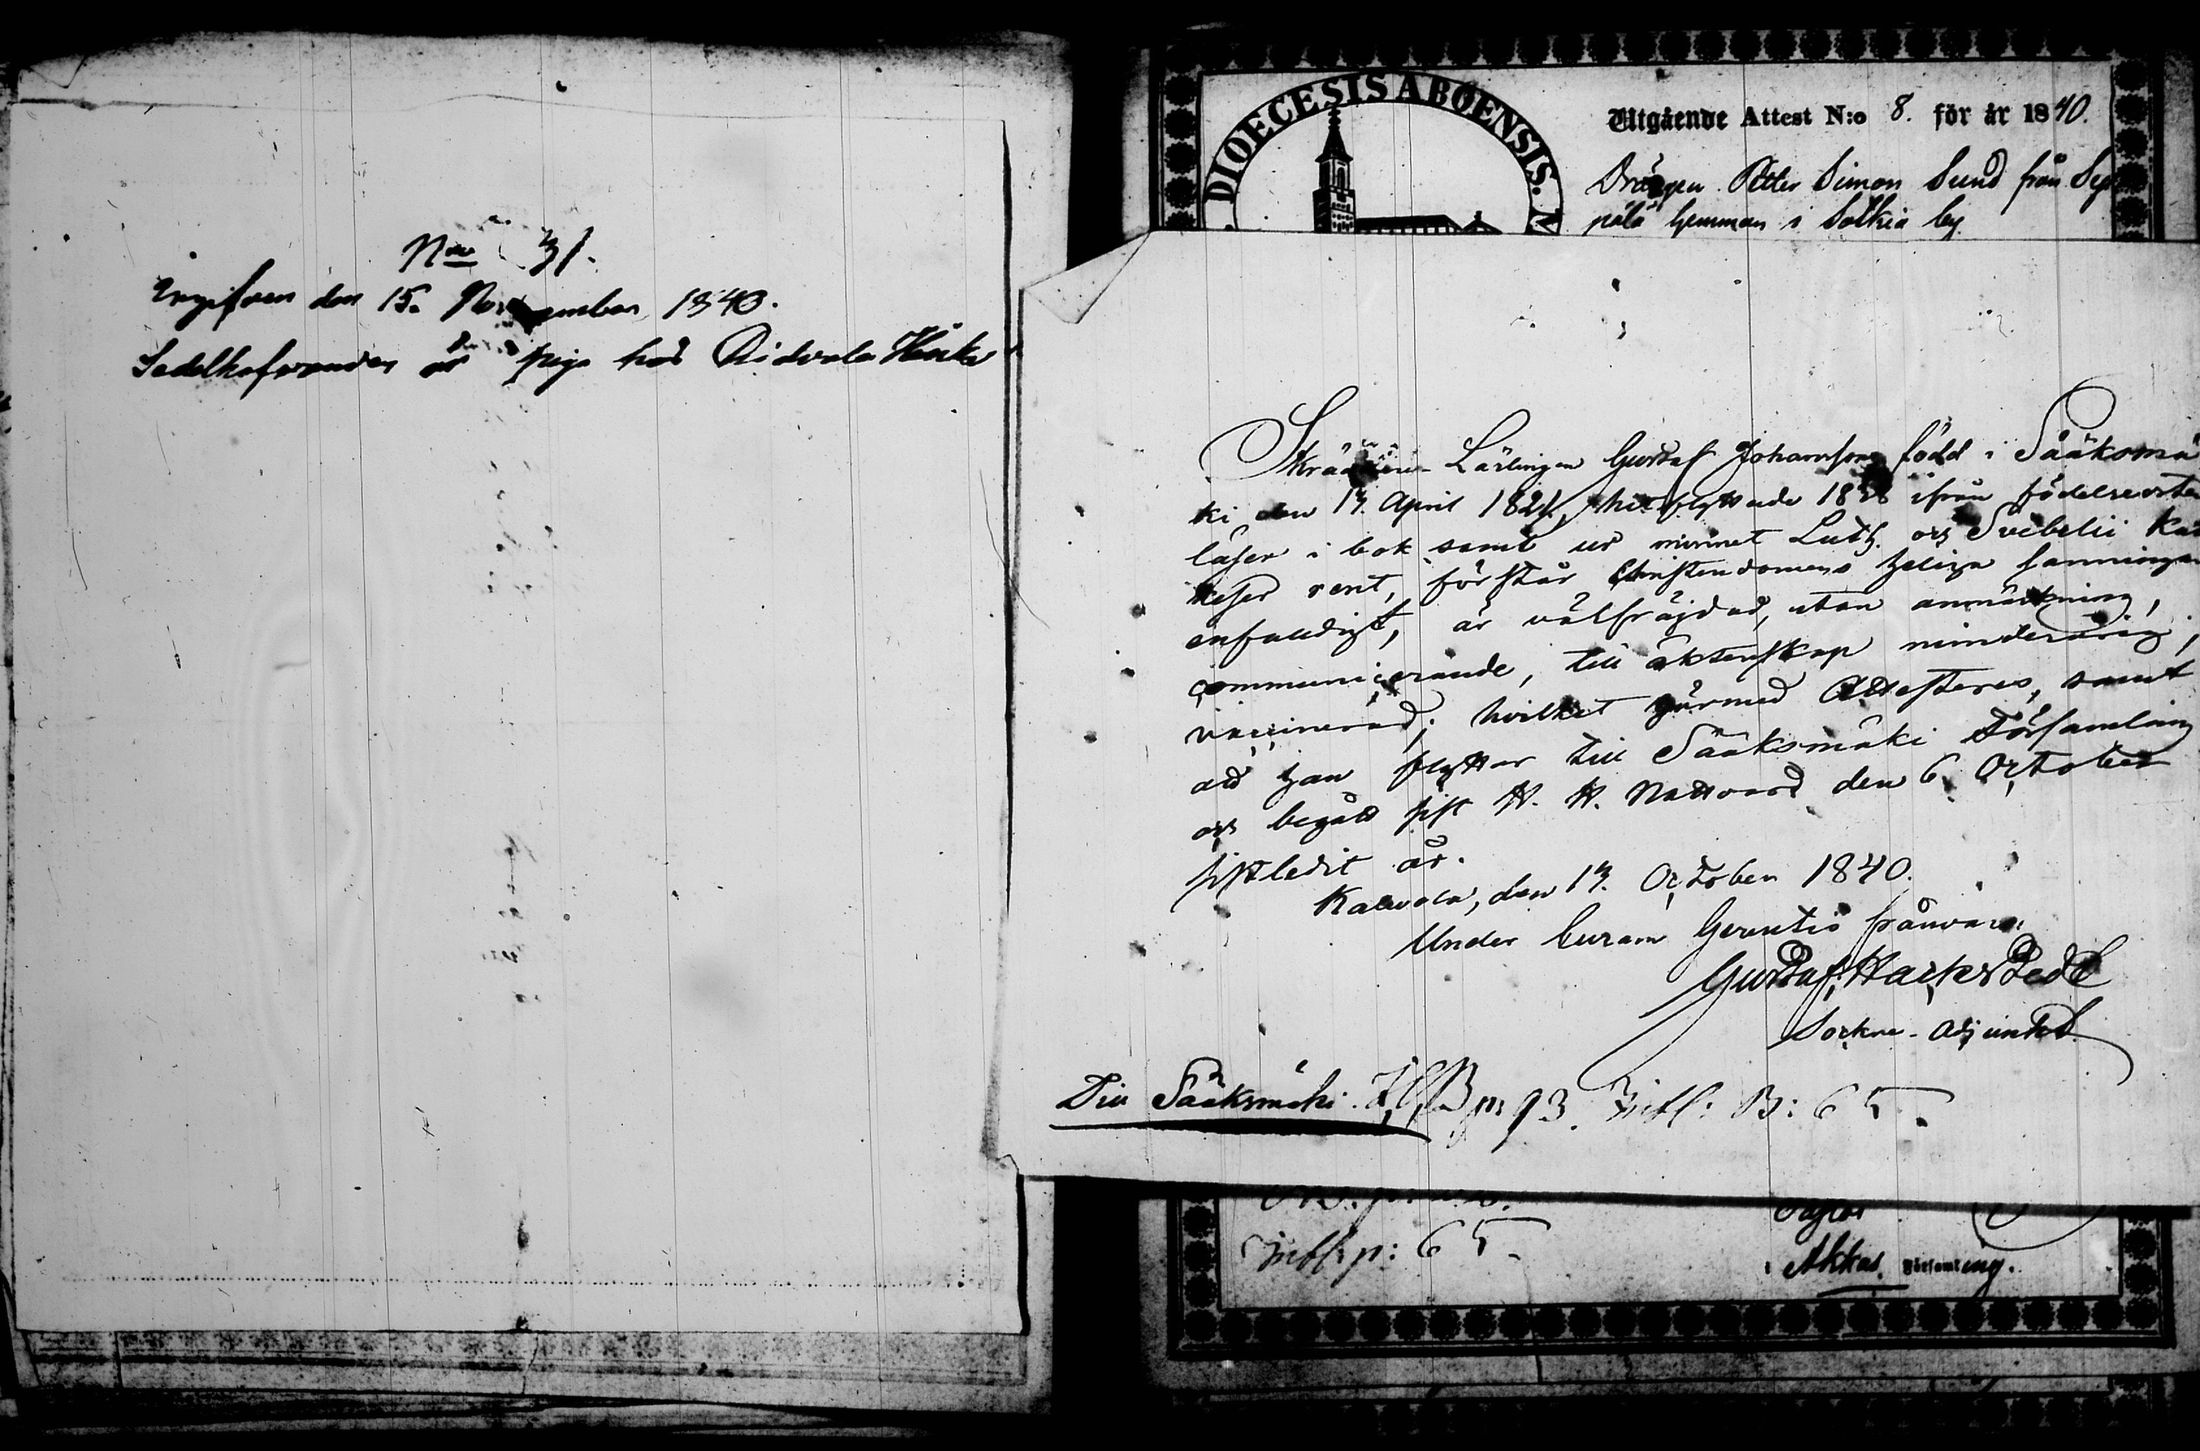 No 31.
Ingifven den 15. November 1840.
Sedelhafvanden är piga hos Ridvala Heikk
DIOECESIS ABOENSIS.
Utgående Attest N:o 8. för år 1840.
Drängen Petter Simon Sund från Sep
pälä hemman i Sotkia by
Skräddare-Lärlingen Gustaf Johansson född i Sääksmä
ki den 13. April 1821, hitflyttade 1838 ifrån födelseorten
läser i bok samt ur minnet Luth. och Svebelii Kat
keser rent, förstår Christendomens heliga sanningar
enfaldigt, är välfräjdad, utan anmärkning,
communicerande, till äktenskap minderårig,
vaccinerad; hvilket härmed Attesteres, samt
att han flyttar till Sääksmäki Församling
och begått sist H. H. Nattvard den 6 October
sistledit år.
Kalvola, den 13. October 1840.
Under Curam Gerentis frånvaro:
Gustaf Hackstedt
Sockne-Adjunkt
Till Sääksmäki. K.B. p: 93. Infl: B: 65.
Infl: p: 65.
Pastor
i Akkas Församling.